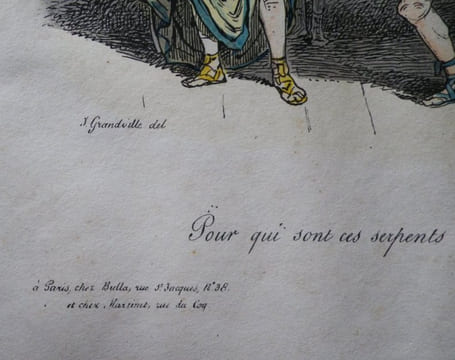 J. Grandville del
Pour qui sont ces serpents
à Paris, chez Bulla, rue St Jacques, No 38.
et chez Martinet, rue du Coq